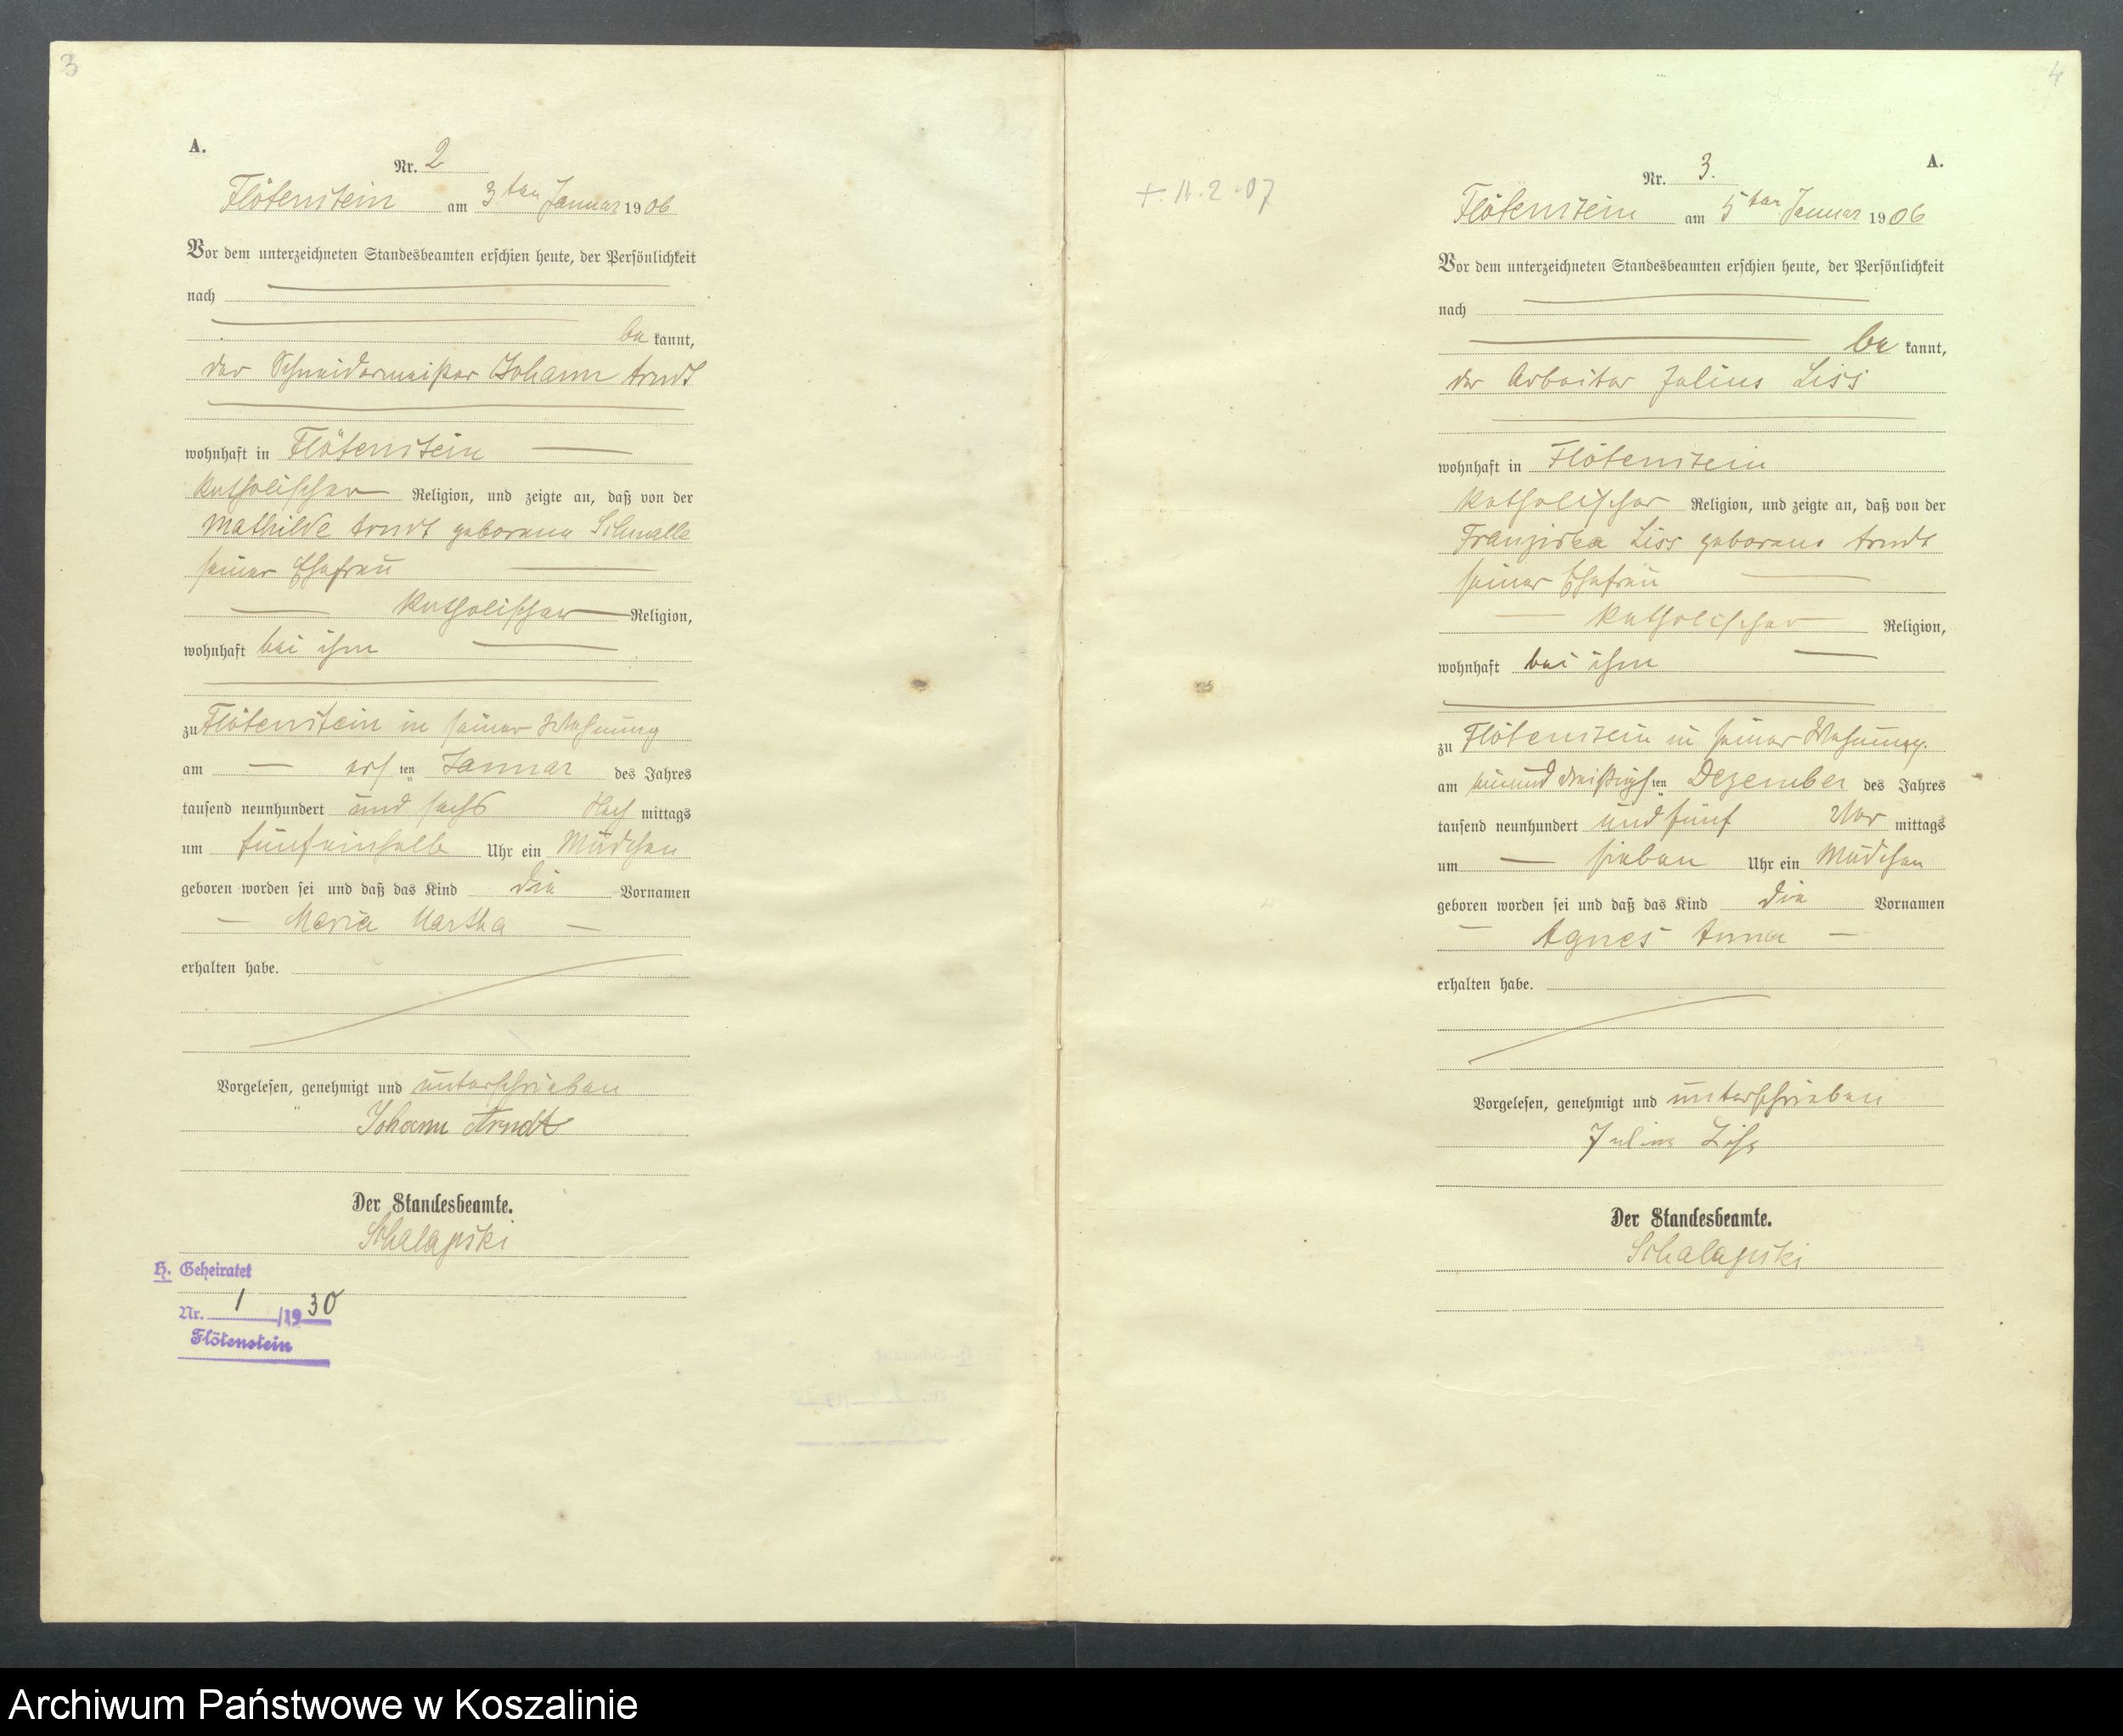 3
A.
Nr. 2
Flötenstein am 3ten Januar 1906
Vor dem unterzeichneten Standesbeamten erschien heute, der Persönlichkeit
nach
be kannt,
der Schneidermeister Johann Arndt
wohnhaft in Flötenstein
katholischer Religion, und zeigte an, daß von der
Mathilde Arndt geborene Schmalle
seiner Ehefrau
katholischer Religion,
wohnhaft bei ihm
zu Flötenstein in seiner Wohnung
am ers ten Januar des Jahres
tausend neunhundert und sechs Nach mittags
um fünfeinhalb Uhr ein Mädchen
geboren worden sei und daß das Kind die Vornamen
Maria Martha
erhalten habe.
Vorgelesen, genehmigt und unterschrieben
Johann Arndt
Der Standesbeamte.
Schalapski
H. Geheiratet
Nr. 1 /1930
Flötenstein
4
+ 11.2.07
A.
Nr. 3.
Flötenstein am 5ten Januar 1906
Vor dem unterzeichneten Standesbeamten erschien heute, der Persönlichkeit
nach
be kannt,
der Arbeiter Julius Liss
wohnhaft in Flötenstein
katholischer Religion, und zeigte an, daß von der
Franziska Liss geborene Arndt
seiner Ehefrau
katholischer Religion,
wohnhaft bei ihm
zu Flötenstein in seiner Wohnung
am einunddreißigs ten Dezember des Jahres
tausend neunhundert und fünf Vor mittags
um sieben Uhr ein Mädchen
geboren worden sei und daß das Kind die Vornamen
Agnes Anna
erhalten habe.
Vorgelesen, genehmigt und unterschrieben
Julius Liss
Der Standesbeamte.
Schalapski
Archiwum Państwowe w Koszalinie